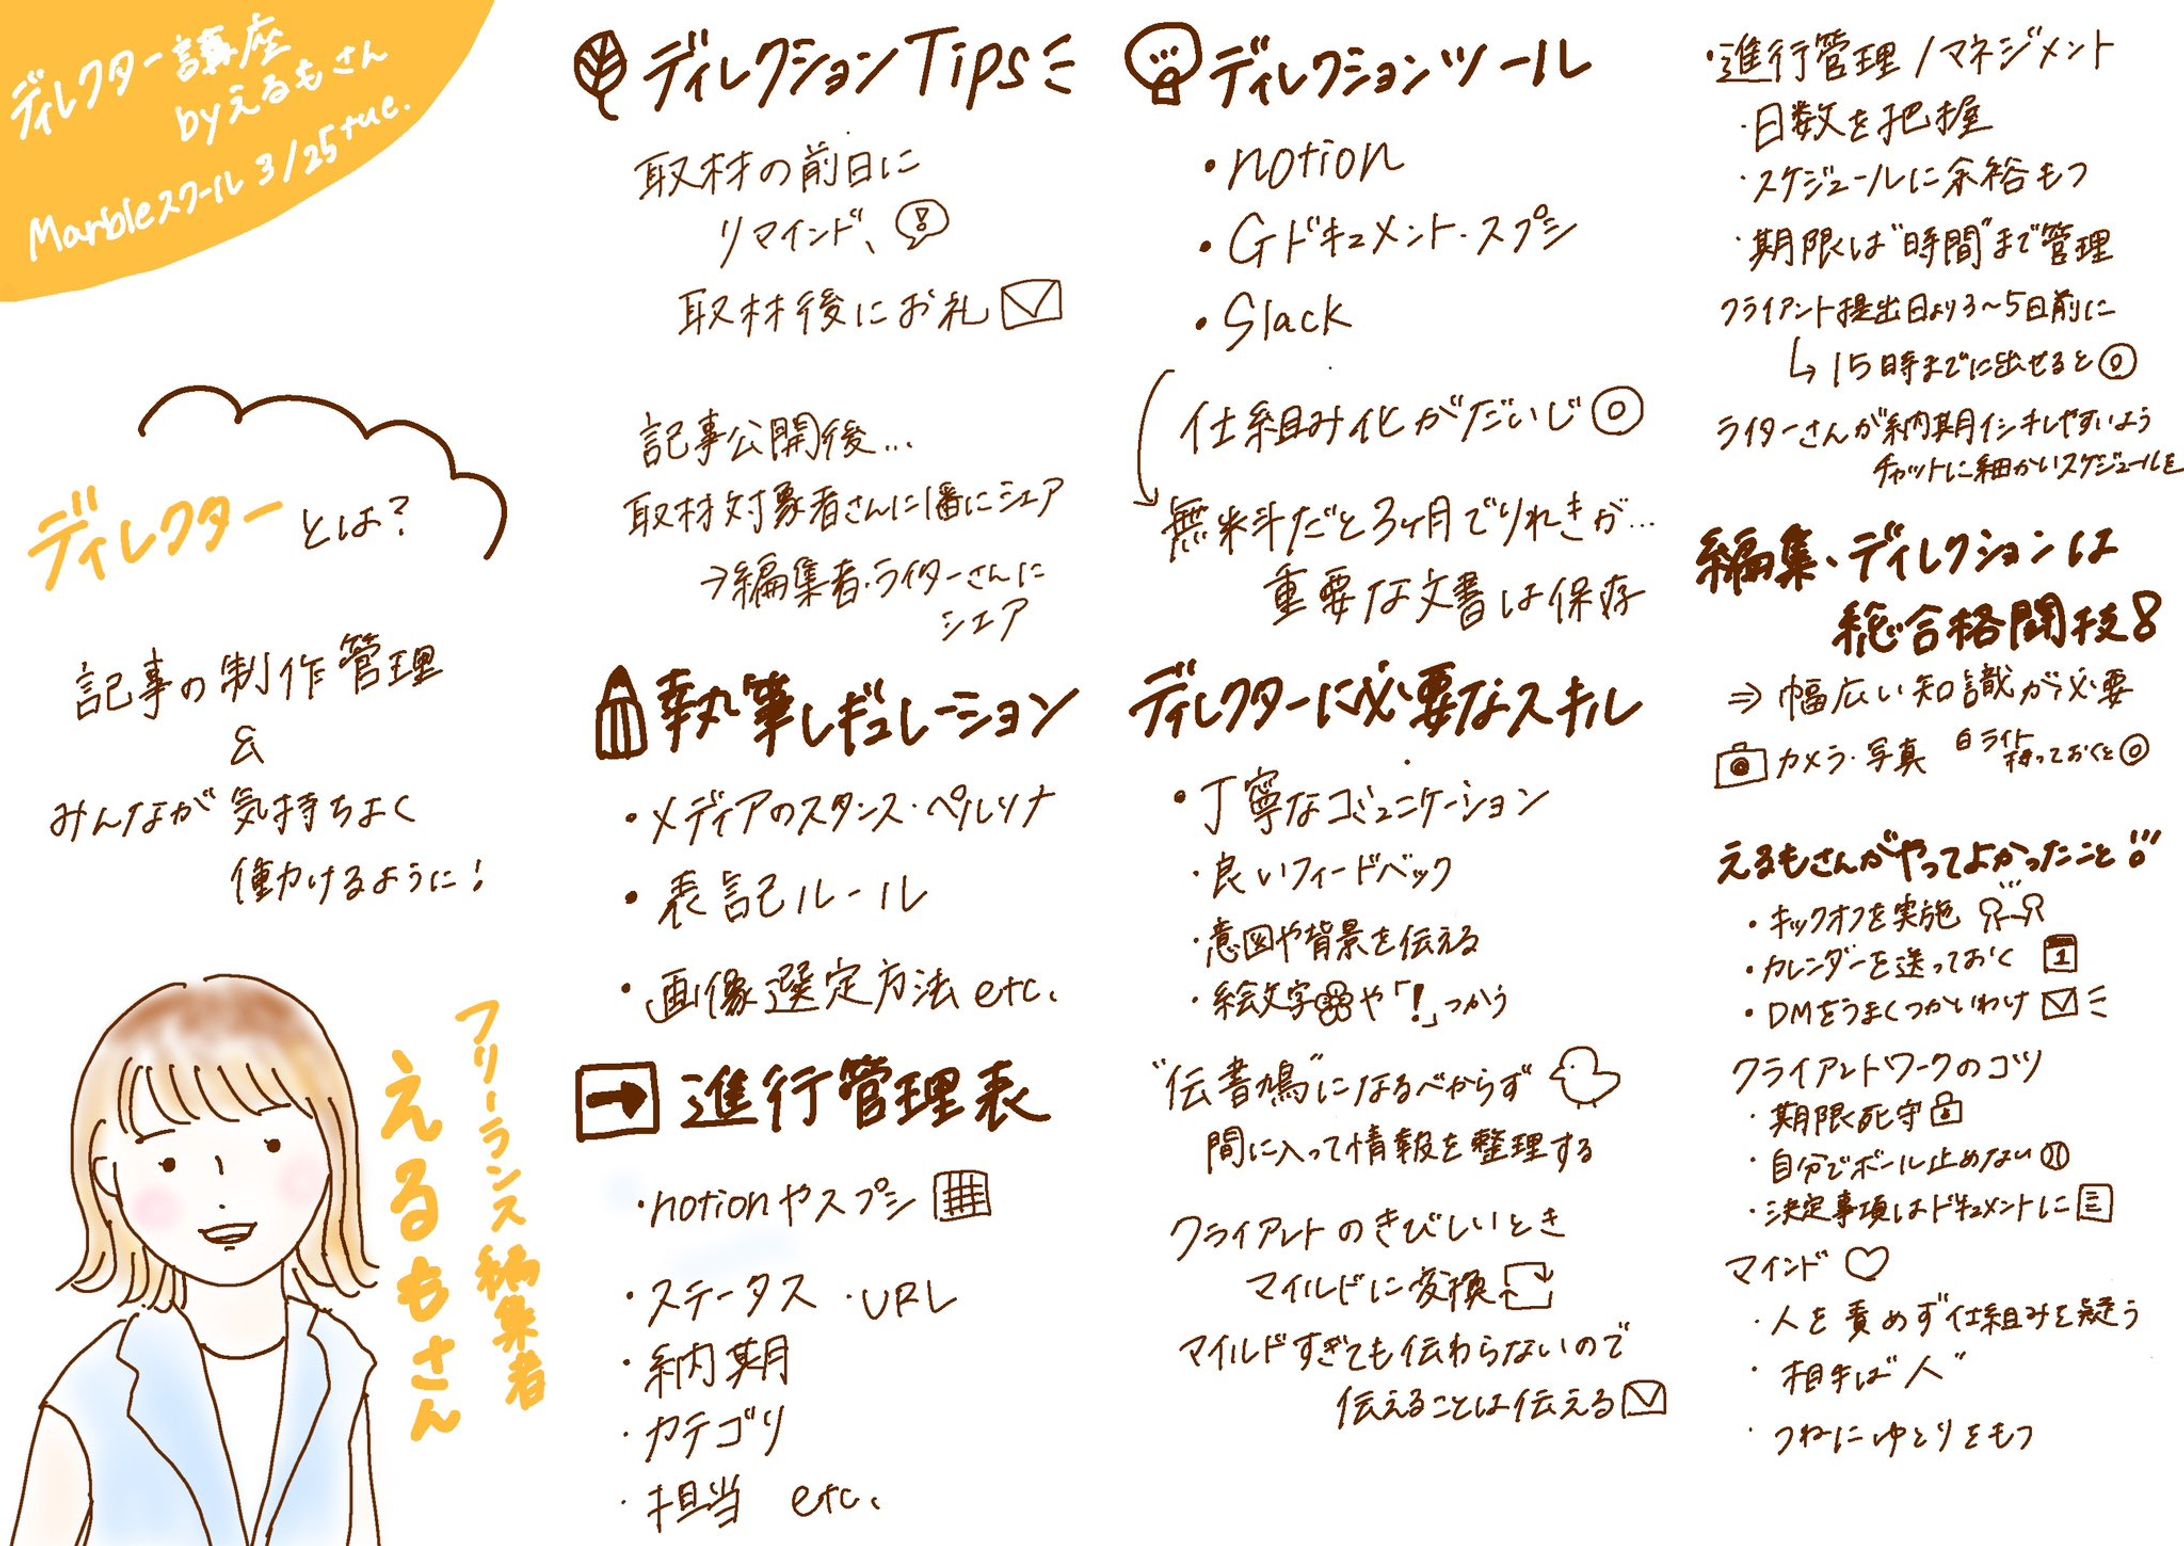 ディレクター講座
byえるもさん
Marbleスクール 3/25tue.
ディレクターとは?
記事の制作管理
&
みんなが気持ちよく
働けるように!
フリーランス編集者
えるもさん
ディレクションTips
取材の前日に
リマインド、
取材後にお礼
記事公開後...
取材対象者さんに1番にシェア
→編集者・ライターさんに
シェア
執筆レギュレーション
・メディアのスタンス・ペルソナ
・表記ルール
・画像選定方法 etc.
進行管理表
・notionやスプシ
・ステータス ・URL
・納期
・カテゴリ
・担当 etc.
ディレクションツール
・notion
・Gドキュメント・スプシ
・Slack
仕組み化がだいじ◎
無料だと3ヶ月でりれきが...
重要な文書は保存
ディレクターに必要なスキル
・丁寧なコミュニケーション
・良いフィードバック
・意図や背景を伝える
・絵文字や「!」つかう
"伝書鳩"になるべからず
間に入って情報を整理する
クライアントのきびしいとき
マイルドに変換
マイルドすぎても伝わらないので
伝えることは伝える
・進行管理/マネジメント
・日数を把握
・スケジュールに余裕もつ
・期限は"時間"まで管理
クライアント提出日より3〜5日前に
↳15時までに出せると◎
ライターさんが納期イシキしやすいよう
チャットに細かいスケジュールを
編集・ディレクションは
総合格闘技!
⇒幅広い知識が必要
カメラ・写真 白ライト
持っておくと◎
えるもさんがやってよかったこと!!!
・キックオフを実施
・カレンダーを送っておく 1
・DMをうまくつかいわけ
クライアントワークのコツ
・期限死守
・自分でボール止めない
・決定事項はドキュメントに
マインド♡
・人を責めず仕組みを疑う
・相手は"人"
・つねにゆとりをもつ